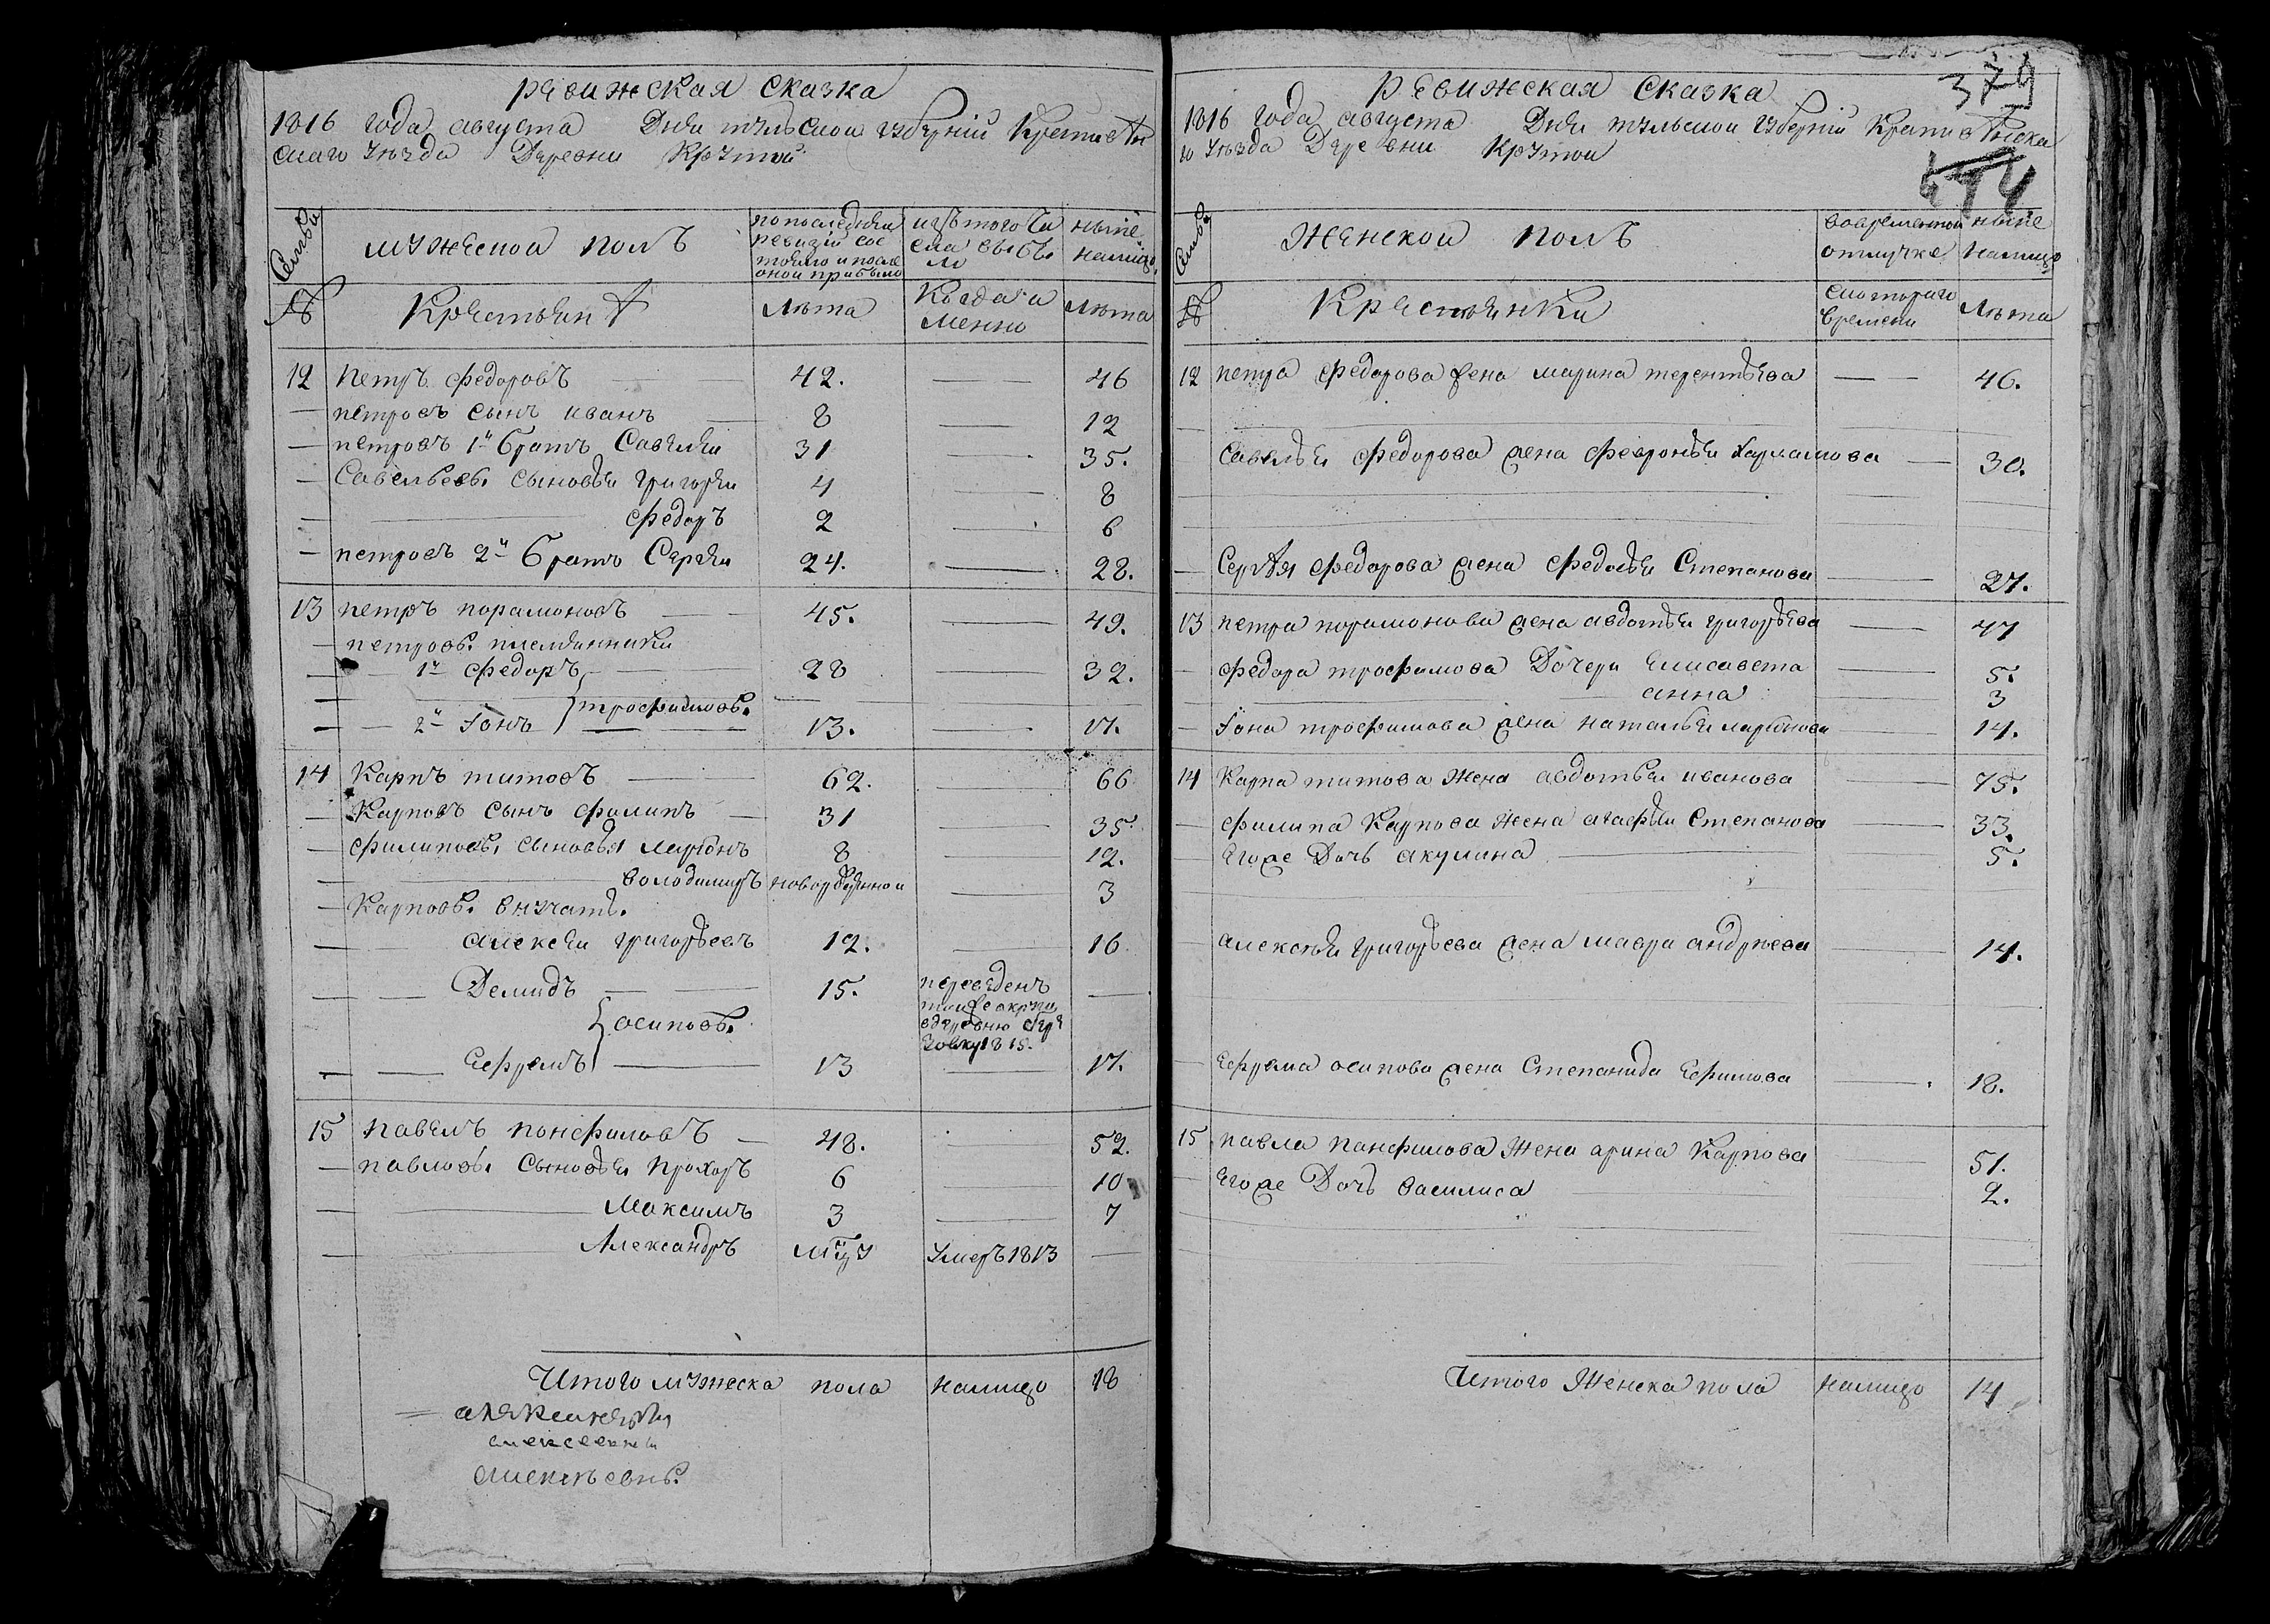 ревижская сказка
1816 года августа Дня тульской губерній Крапивѣн
скаго уѣзда Деревни Крутой
Семьи
мужеской полъ
попоследней
ревизій сос
тояло и после
оной прибыло
изътого чи
сла выбы
ло
ныне
налицо
№
Крестьяня
Лѣта
Когда и
менно
Лѣта
12 петръ федоровъ 42. 46
петровъ сынъ иванъ 8 12
петровъ 1й братъ Савелей 31 35.
Савельевы сыновьи григорей 4 8
федоръ 2 6
петровъ 2й братъ Сергей 24. 28.
13 петръ парамоновъ 45. 49.
петровы племянники
1й федоръ 28 32.
трофимовы
2й Iонъ 13. 17.
14 Карпъ титовъ 62. 66
Карповъ сынъ филипъ 31 35.
филиповы сыновья ларионъ 8 12.
володимиръ новорожденной 3
Карповы внучаты
алексей григорьевъ 12. 16
Демидъ 15. переведенъ
тойже округи
вдеревню
1815.
осиповы
Ефремъ 13 17.
15 павелъ панфиловъ 48. 52.
павловы сыновьи прохоръ 6 10
Максимъ 3 7
Александръ Умеръ 1813
Итого мужеска пола налицо 18
алексеевны
алексѣевны
ревижская сказка
379
1816 года августа Дня тульской губерній Крапивѣнска
го уѣзда Деревни Крутой
Семьи
Женской полъ
вовременной
отлучке
ныне
налицо
№
Крестьянки
скотораго
времени
Лѣта
12 петра федорова жена марина терентьева 46.
Савелья федорова жена февронья харламова 30.
Сергея федорова жена федосья Степанова 27.
13 петра парамонова жена авдотья григорьева 47
федора трофимова Дочери елисавета 5.
анна 3
Iона трофимова жена наталья ларионова 14.
14 Карпа титова Жена авдотья иванова 75.
филипа Карпова жена агафья Степанова 33.
егоже Дочь акулина 5.
алексея григорьева жена мавра андреева 14.
Ефрема осипова жена Степанида Ефимова 18.
15 павла панфилова Жена арина Карпова 51.
егоже Дочь василиса 2.
Итого Женска пола налицо 14